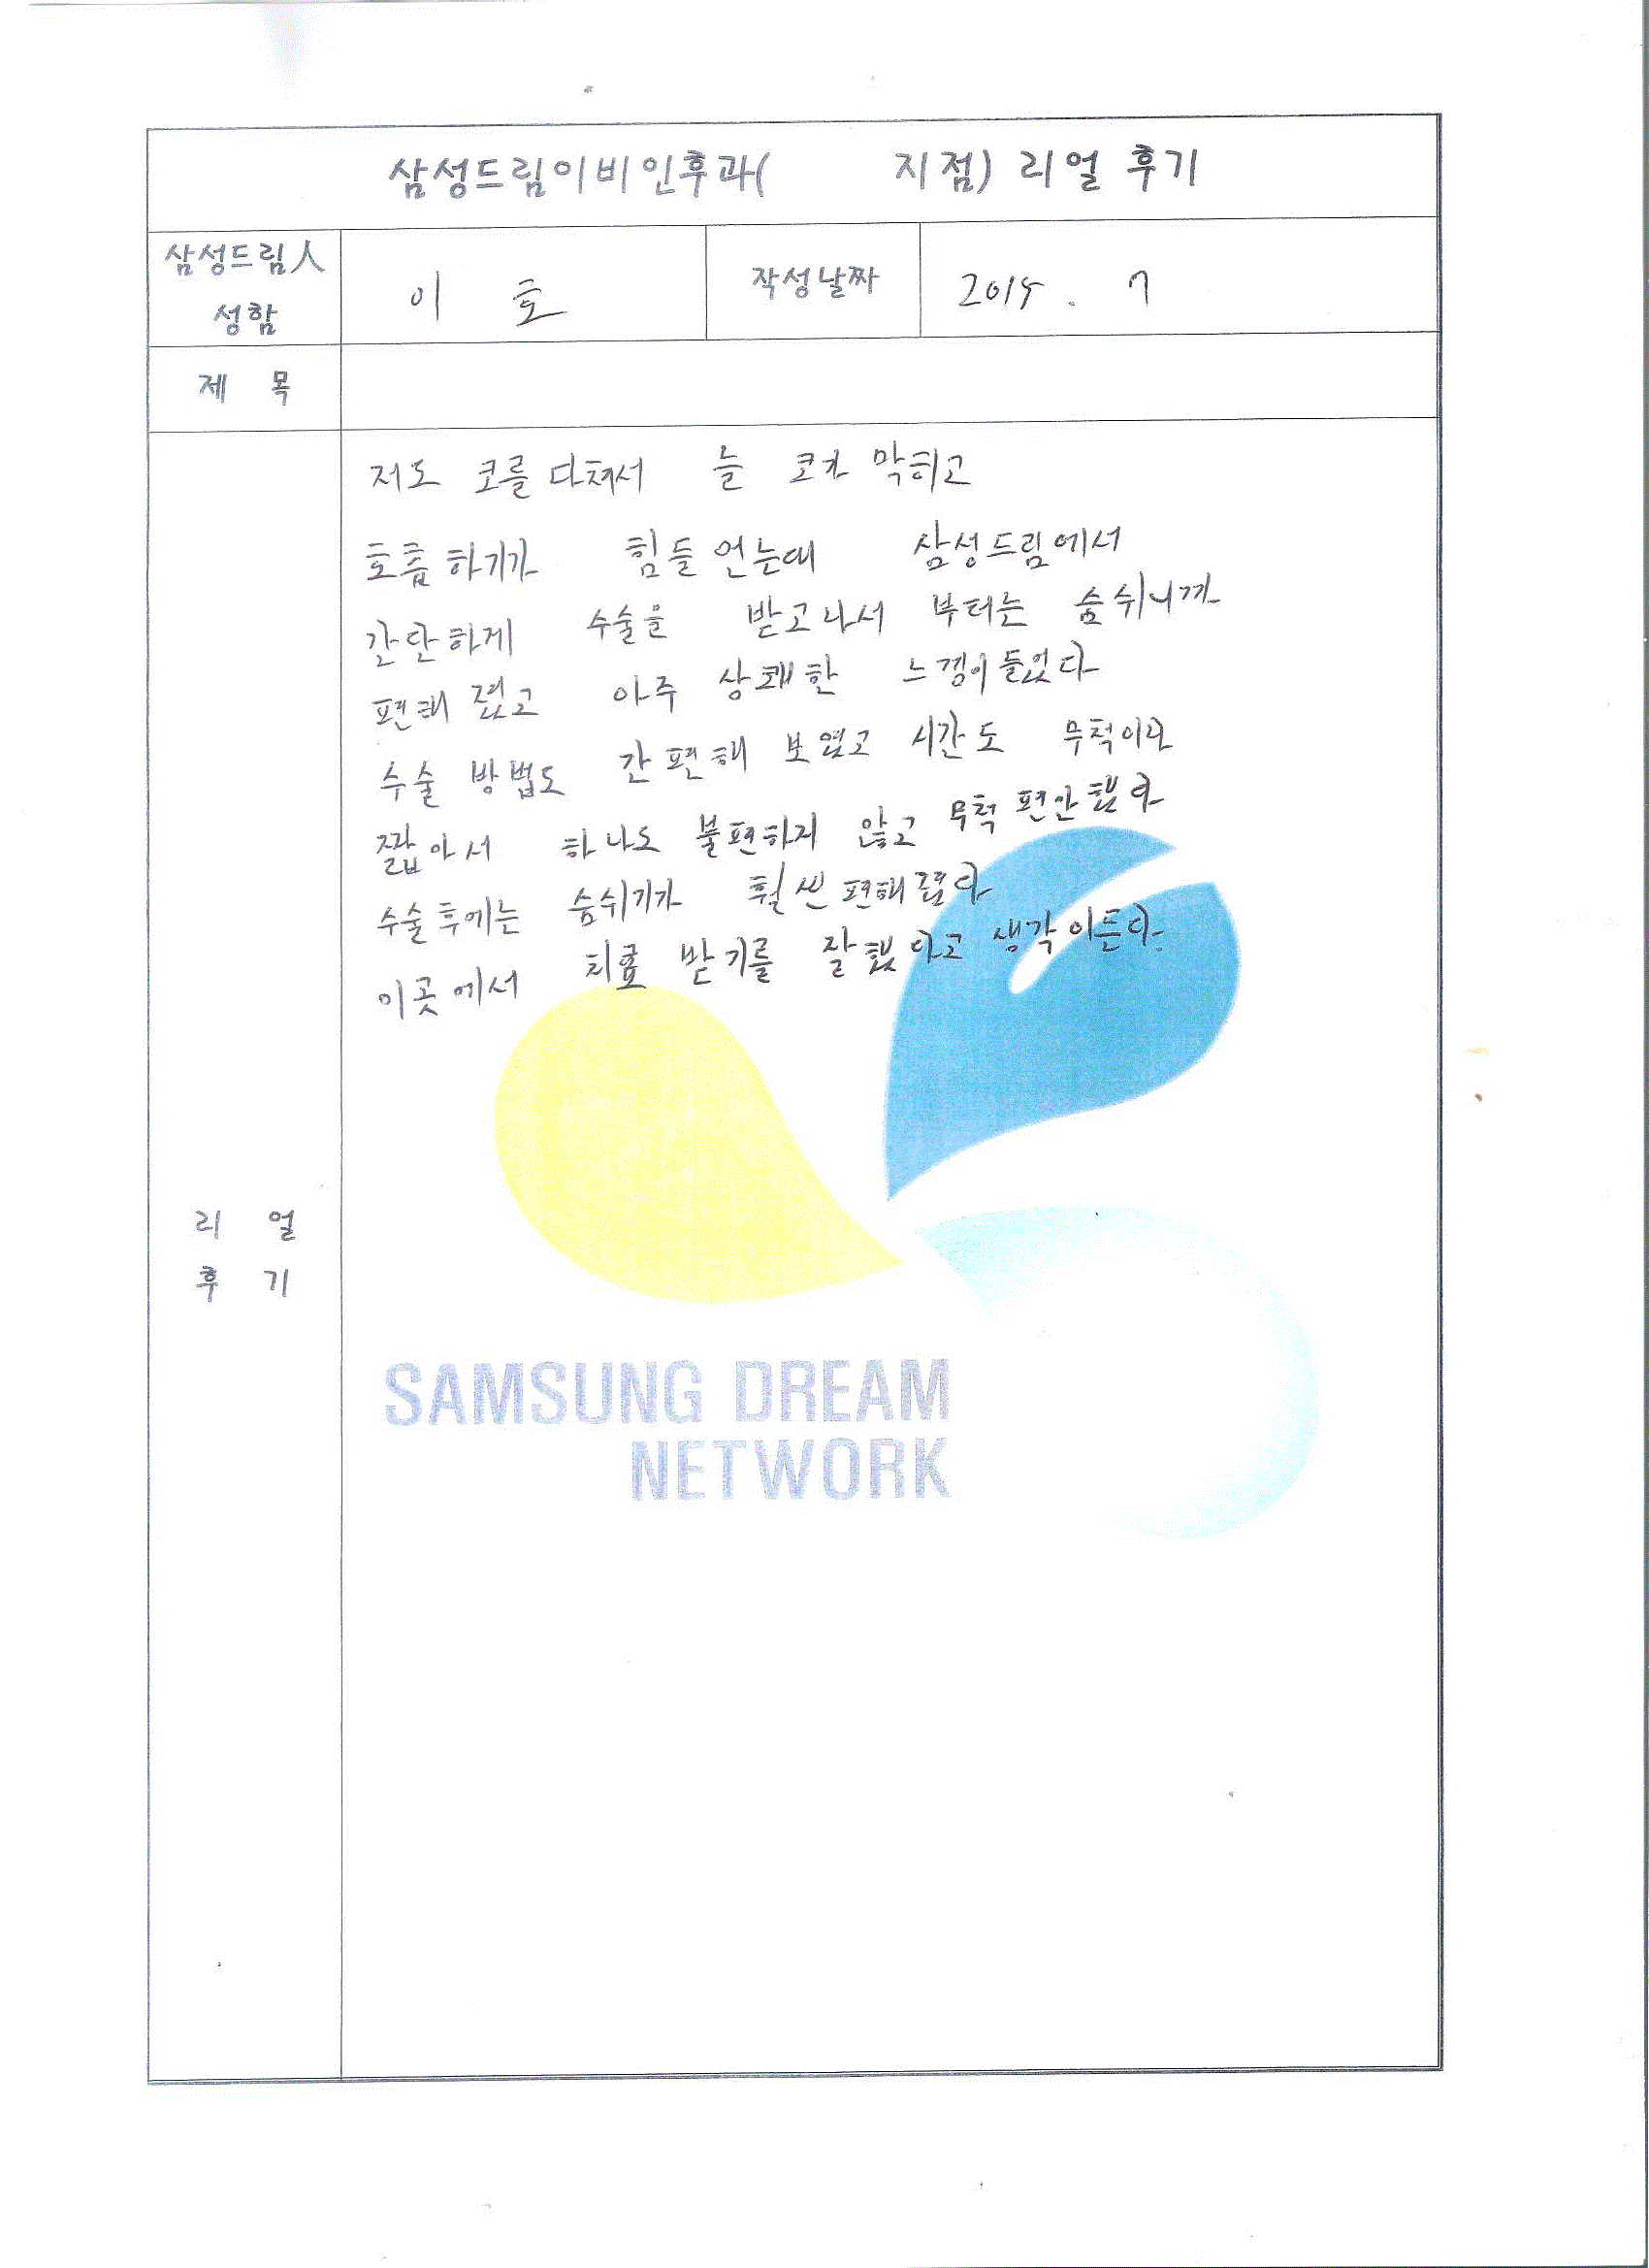 삼성드림이비인후과( 지점) 리얼 후기
삼성드림人
성함
이 호
작성날짜
2014. 7
제 목
저도 코를 다쳐서 늘 코가 막히고
호흡하기가 힘들언는대 삼성드림에서
간단하게 수술을 받고나서 부터는 숨쉬니까
편해 졌고 아주 상쾌한 느낌이들었다
수술 방법도 간편해 보였고 시간도 무척이나
짧아서 하나도 불편하지 않고 무척 편안했다
수술후에는 숨쉬기가 훨씬 편해졌다
이곳에서 치료 받기를 잘했다고 생각이든다.
리 얼
후 기
SAMSUNG DREAM
NETWORK